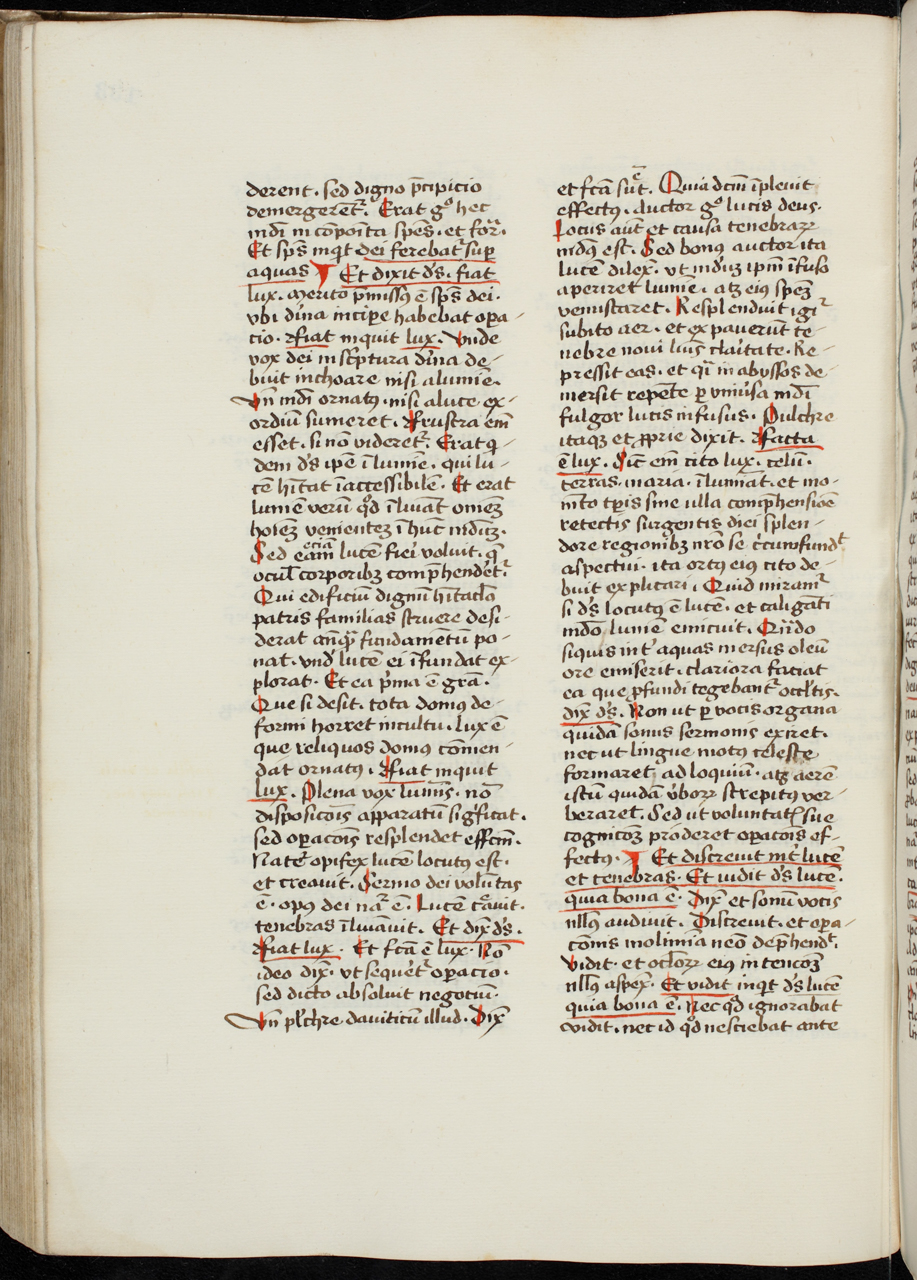 derent. sed digno p̄cipicio
demergerēt᷑. Erat gº hec
mdi īcōpoīta spēs. et for᷑.
Et spūs inqt dei ferebat᷑ sup̲
aquas ¶ Et dixit dˢ. fiat
lux. merito p̄missꝰ ē spūs dei.
vbi dīna incipe habebat opa-
cio. Fiat inquit lux. Vnde
vox dei in scptura dīna de-
buit inchoare nisi a lumīe.
Vn̄ mdi ornatꝰ. nisi a luce ex-
ordiū sumeret. Frustra em̄
esset. si nō videret᷑. Erat q-
dem dˢ ipē ī lumīe. qui lu-
cē hītat īaccessibilē. Et erat
lumē verū qd̄ īlūīat omēꝫ
hoīeꝫ venienteꝫ ī hūc mdūꝫ.
Sed eciā eam lucē fieri voluit. q̄
ocul̄ corporibꝫ comp̄hendet᷑.
Qui edificiū dignū hītaclo
patris familias struere desi-
derat anq̄ȝ fundamētū po-
nat. vnd̛ lucē ei īfundat ex-
plorat. Et ea p̛ma ē gr̄a.
Que si desit. tota domꝰ de-
formi horret incultu. Lux ē
que reliquos domꝰ cōmen-
dat ornatꝰ. Fiat inquit
lux. Plena vox lumīs. nō
disposicōis apparatum sigficat.
sed opacōis resplendet effcm̄.
Nat̛e opifex lucē locutꝰ est.
et creauit. Sermo dei volūtas
ē. opꝰ dei nar᷑ ē. Lucē cāuit.
tenebras īlūauit. Et dix dˢ.
Fiat lux. Et fcā ē lux. Nō
ideo dix. vt sequet᷑ opacio.
sed dicto absoluit negociū.
Vn̄ plchre dauiticū illud. Dix
et fcā sūt. Quia dcm̄ īpleuit
effectꝰ. Auctor gº lucis deus.
Locus aūt et causa tenebraꝝ
mdꝰ est. Sed bonꝰ auctor ita
lucē dilex. vt mdūꝫ ipm̄ īfuso
aperiret lumīe. atꝫ eiꝰ speꝫ
venustaret. Resplenduit igi᷑
subito aer. et expauerūt te-
nebre noui luīs claitate. Re-
pressit eas. et q̄i in abyssos de-
mersit repēte p̲ vniūsa mdi
fulgor lucis infusus. Pulchre
itaqꝫ et ꝓprie dixit. Facta
ē lux. Sic em̄ cito lux. celū.
terras. maria. īlumīat. et mo-
mēto tp̄is sine ulla comp̄hensiōe
retectis surgentis diei splen-
dore regionibꝫ nr̄o se circūfund᷑
aspectui. ita ortꝰ eiꝰ cito de-
buit explicari. Quid miram᷑
si dˢ locutꝰ ē lucē. et caligāti
mdō lumē emicuit. Qn̄do
siquis int̛ aquas mersus oleū
ore emiserit. clariora faciat
ea que p̱fundi tegebant᷑ occl̄tis.
dix dˢ. Non ut p̲ vocis organa
quidā sonus sermonis exiret.
nec ut lingue motꝰ celeste
formaret ad loquiū. atꝫ aerē
istū quidā v̛boꝝ strepitꝰ ver-
beraret. Sed ut voluntatꝭ sue
cognicōeꝫ proderet opacōis ef-
fectꝰ. ¶ Et discreuit int̛ lucē
et tenebras. Et vidit dˢ lucē.
quia bona ē. Dix et sonū vocis
nllꝰ audiuit. Discreuit. et opa-
cōnis molimīa neō dep̄hend᷑.
Vidit. et ocloꝝ eiꝰ intencōꝫ
nllꝰ aspex. Et vidit inqt dˢ lucē
quia bona ē. Nec qd̄ ignorabat
vidit. nec id qd̄ nesciebat ante